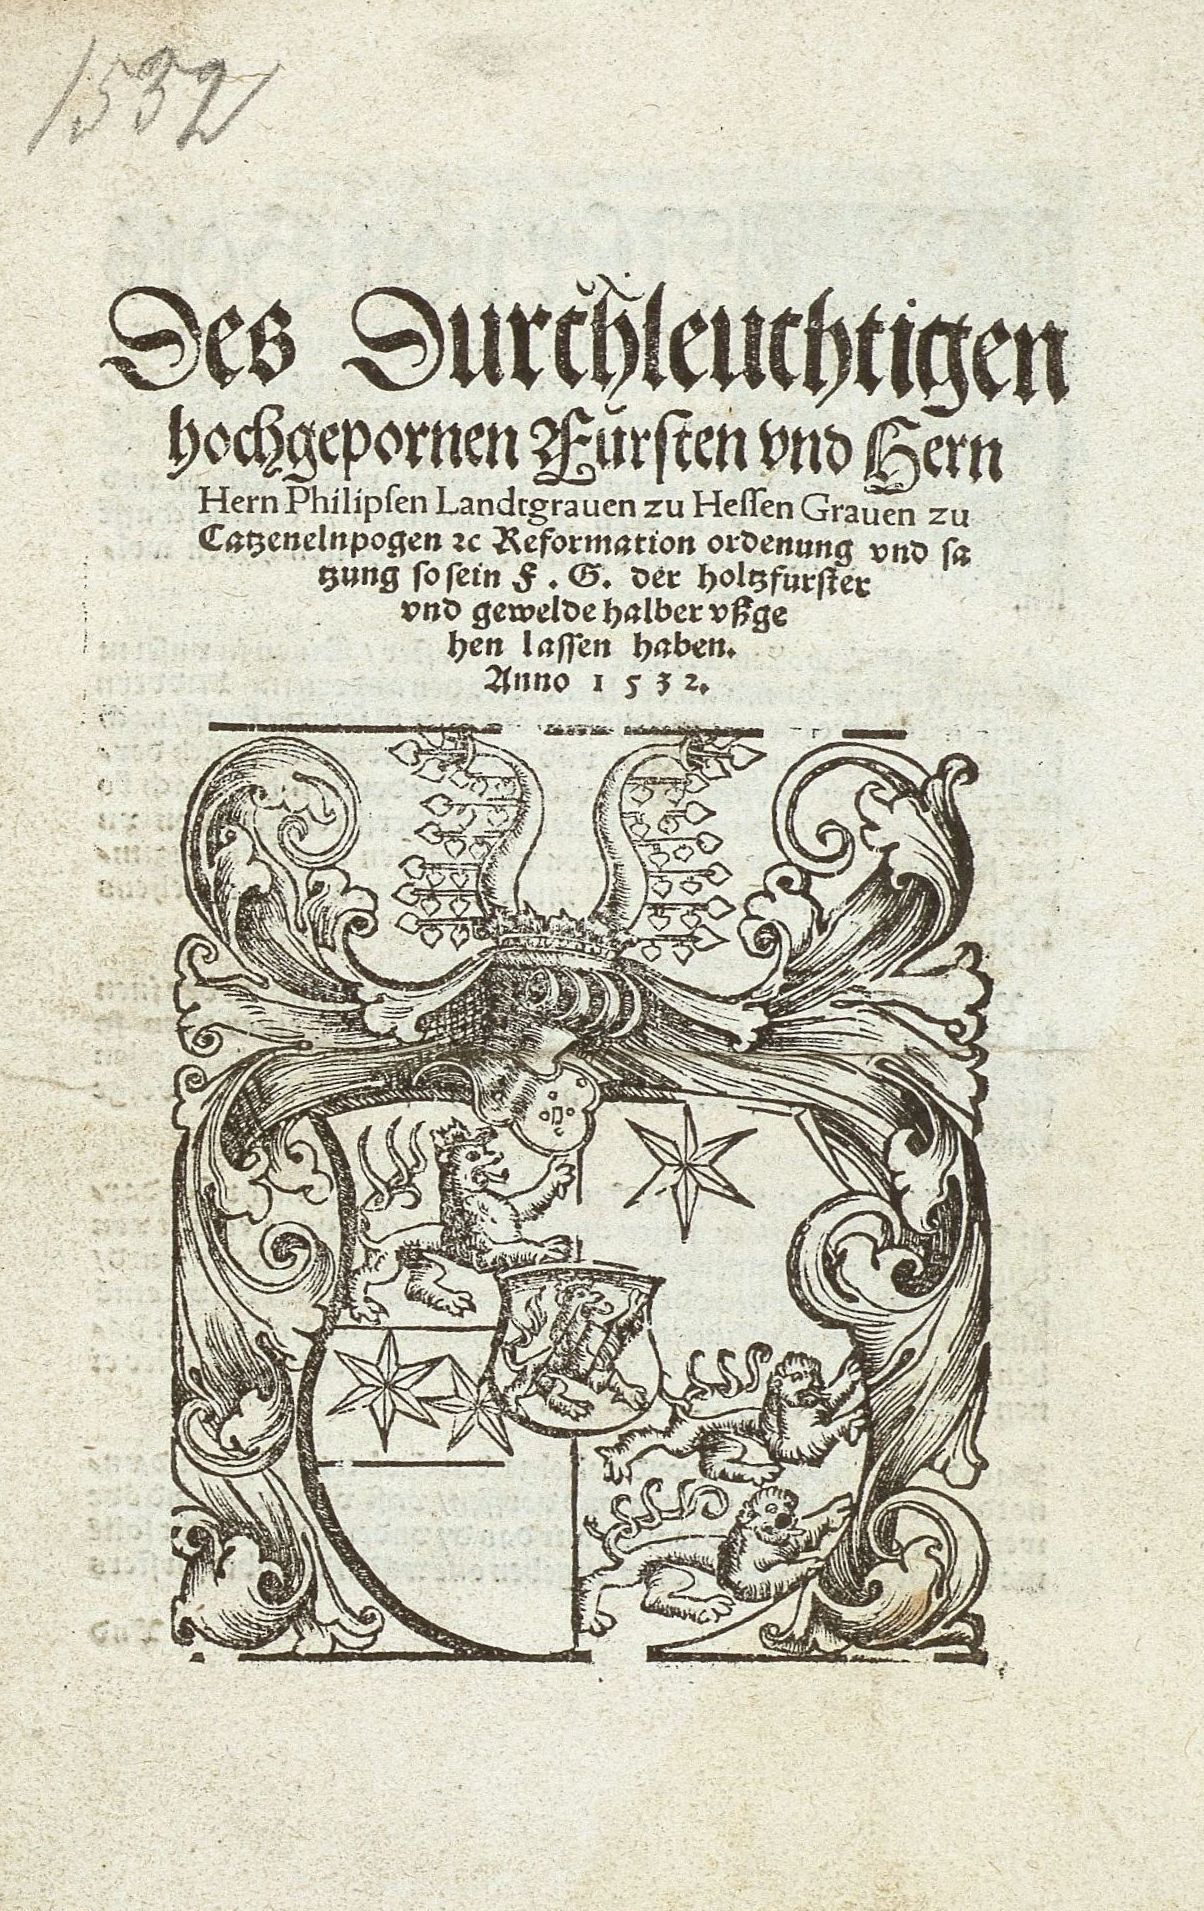 1532
Des Durchleuchtigen
hochgepornen Fürsten vnd Hern
Hern Philipſen Landtgrauen zu Heſſen Grauen zu
Catzenelnpogen ꝛc Reformation ordenung vnd ſa
tzung ſo ſein F. G. der holtzfurſter
vnd gewelde halber vßge
hen laſſen haben.
Anno 1532.